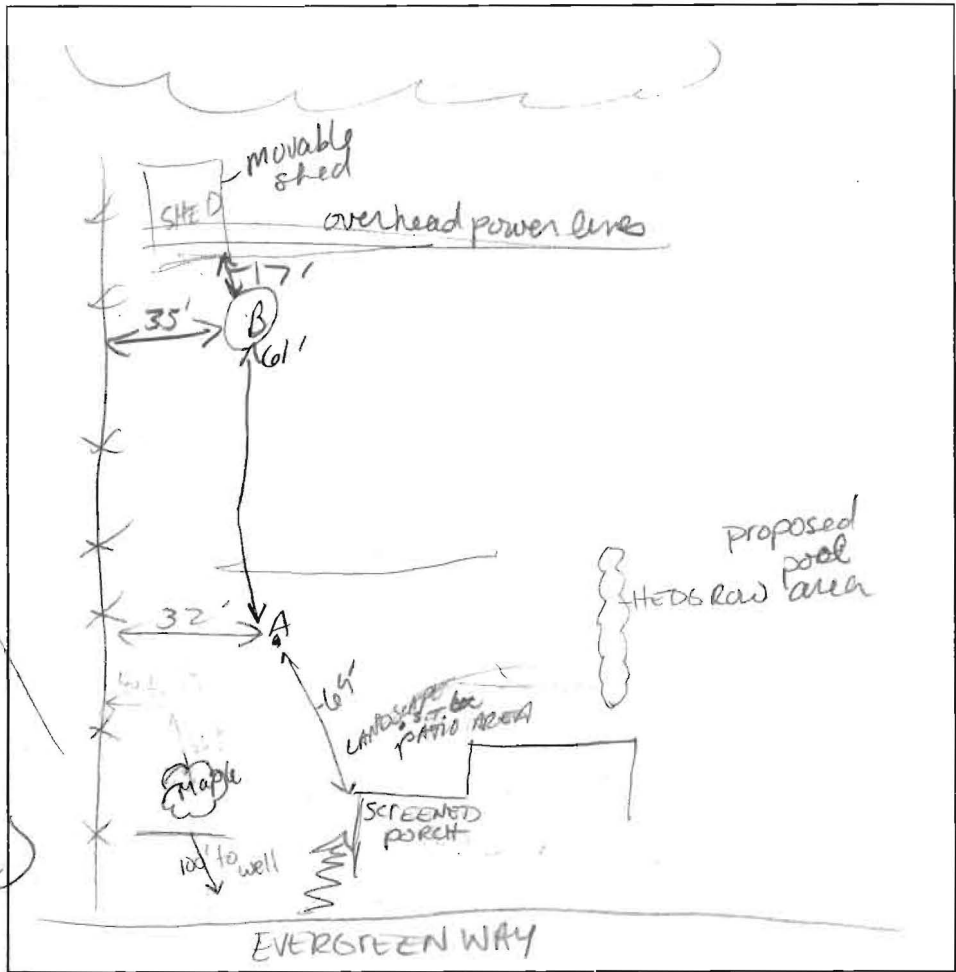 movable
shed
SHED
overhead power lines
17'
35'
B
61'
proposed
pool
area
HEDGROW
32'
A
64'
LANDSCAPE
S.T.
PATIO AREA
Maple
SCREENED
PORCH
100' to well
EVERGREEN WAY